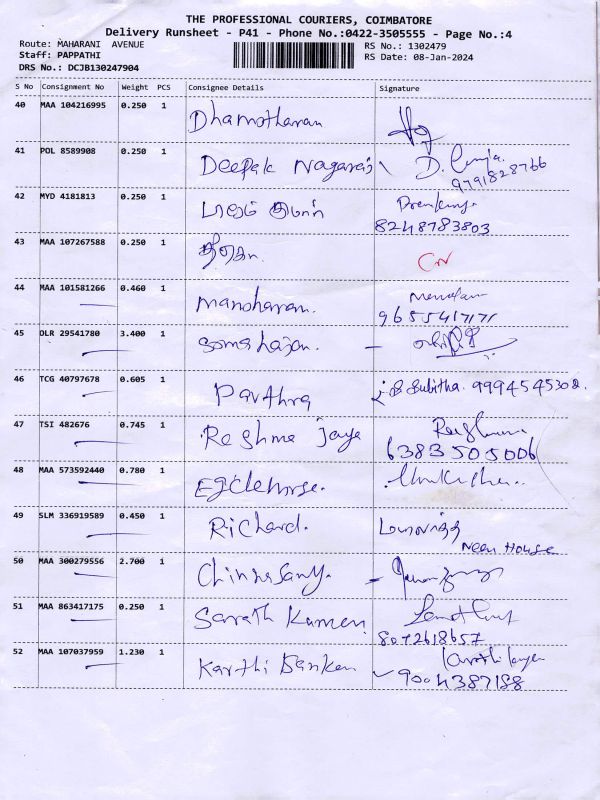 THE PROFESSIONAL COURIERS, COIMBATORE
Delivery Runsheet - P41 - Phone No.:0422-3505555 - Page No.:4
Route: MAHARANI AVENUE
RS No.: 1302479
Staff: PAPPATHI
RS Date: 08-Jan-2024
DRS No.: DCJB130247904
S No Consignment No Weight PCS Consignee Details Signature
40 MAA 104216995 0.250 1 Dhamotharan
41 POL 8589908 0.250 1 Deepak Nagaraj D.
9791828766
42 MYD 4181813 0.250 1
8248783803
43 MAA 107267588 0.250 1
44 MAA 101581266 0.460 1 manoharan.
9655417171
45 DLR 29541780 3.400 1
46 TCG 40797678 0.605 1 Parthra Subitha. 9994545302.
47 TSI 482676 0.745 1 Reshma Jaya
6383505006
48 MAA 573592440 0.780 1
49 SLM 336919589 0.450 1 Richard.
Neen House
50 MAA 300279556 2.700 1 Chinnsamy.
51 MAA 863417175 0.250 1 Sarath Kumar
8072618657
52 MAA 107037959 1.230 1 Karthi
9004387188